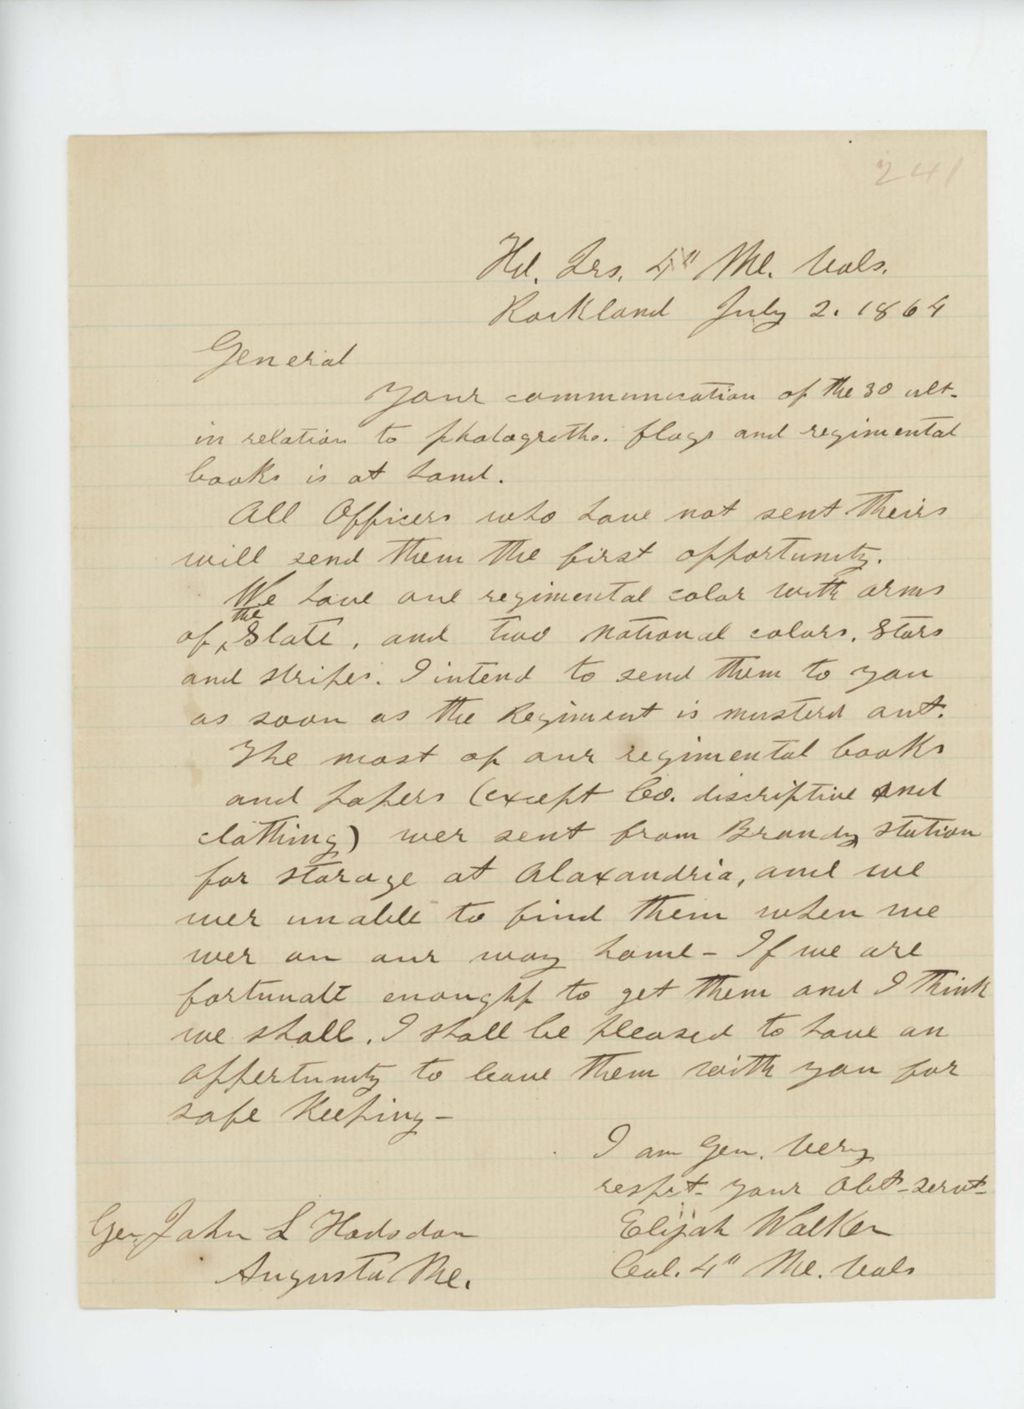 241
Hd. Qrs. 4" Me. Vols.
Rockland July 2. 1864
General
Your communication of the 30 ult.
in relation to photogroths. flags and regimental
books is at hand.
All Officers who have not sent theirs
will send them the first opportunity.
We have one regimental color with arms
of the State, and two national colors. Stars
and stripes. I intend to send them to you
as soon as the Regiment is musterd out.
The most of our regimental books
and papers (except Co. discriptive and
clothing) wer sent from Brandy Station
for storage at Alaxandria, and we
wer unable to find them when we
wer on our way home - If we are
fortunate enought to get them and I think
we shall. I shall be pleased to have an
oppertunity to leave them with you for
safe keeping -
I am Gen. Very
respct. your Obt. servt.
Elijah Walker
Col. 4" Me. Vols
Gen. John L Hodsdon
Augusta Me.